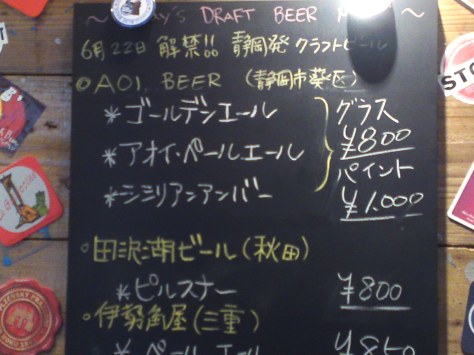 ～ day's DRAFT BEER ～
6月22日 解禁!! 静岡発 クラフトビール
◎AOI BEER (静岡市葵区)
*ゴールデンエール
*アオイ・ペールエール
*シシリアンアンバー
グラス
¥800
パイント
¥1,000
○田沢湖ビール(秋田)
*ピルスナー ¥800
○伊勢角屋(三重)
*ペールエール ¥850